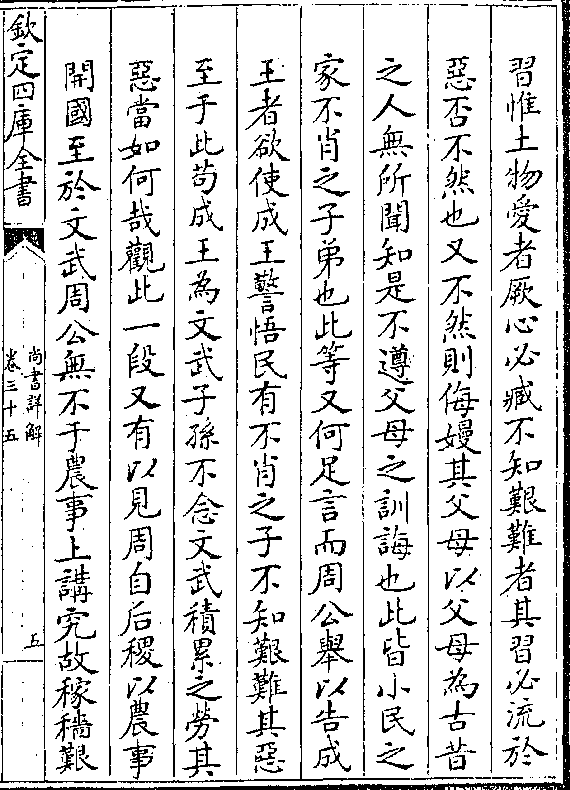 習惟土物愛者厥心必臧不知艱難者其習必流於
惡否不然也又不然則侮嫚其父母以父母為古昔
之人無所聞知是不遵父母之訓誨也此皆小民之
家不肖之子弟也此等又何足言而周公舉以告成
王者欲使成王警悟民有不肖之子不知艱難其惡
至于此苟成王為文武子孫不念文武積累之勞其
惡當如何哉觀此一段又有以見周自后稷以農事
開國至於文武周公無不于農事上講究故稼穡艱
欽定四庫全書
尚書詳解
卷三十五
五